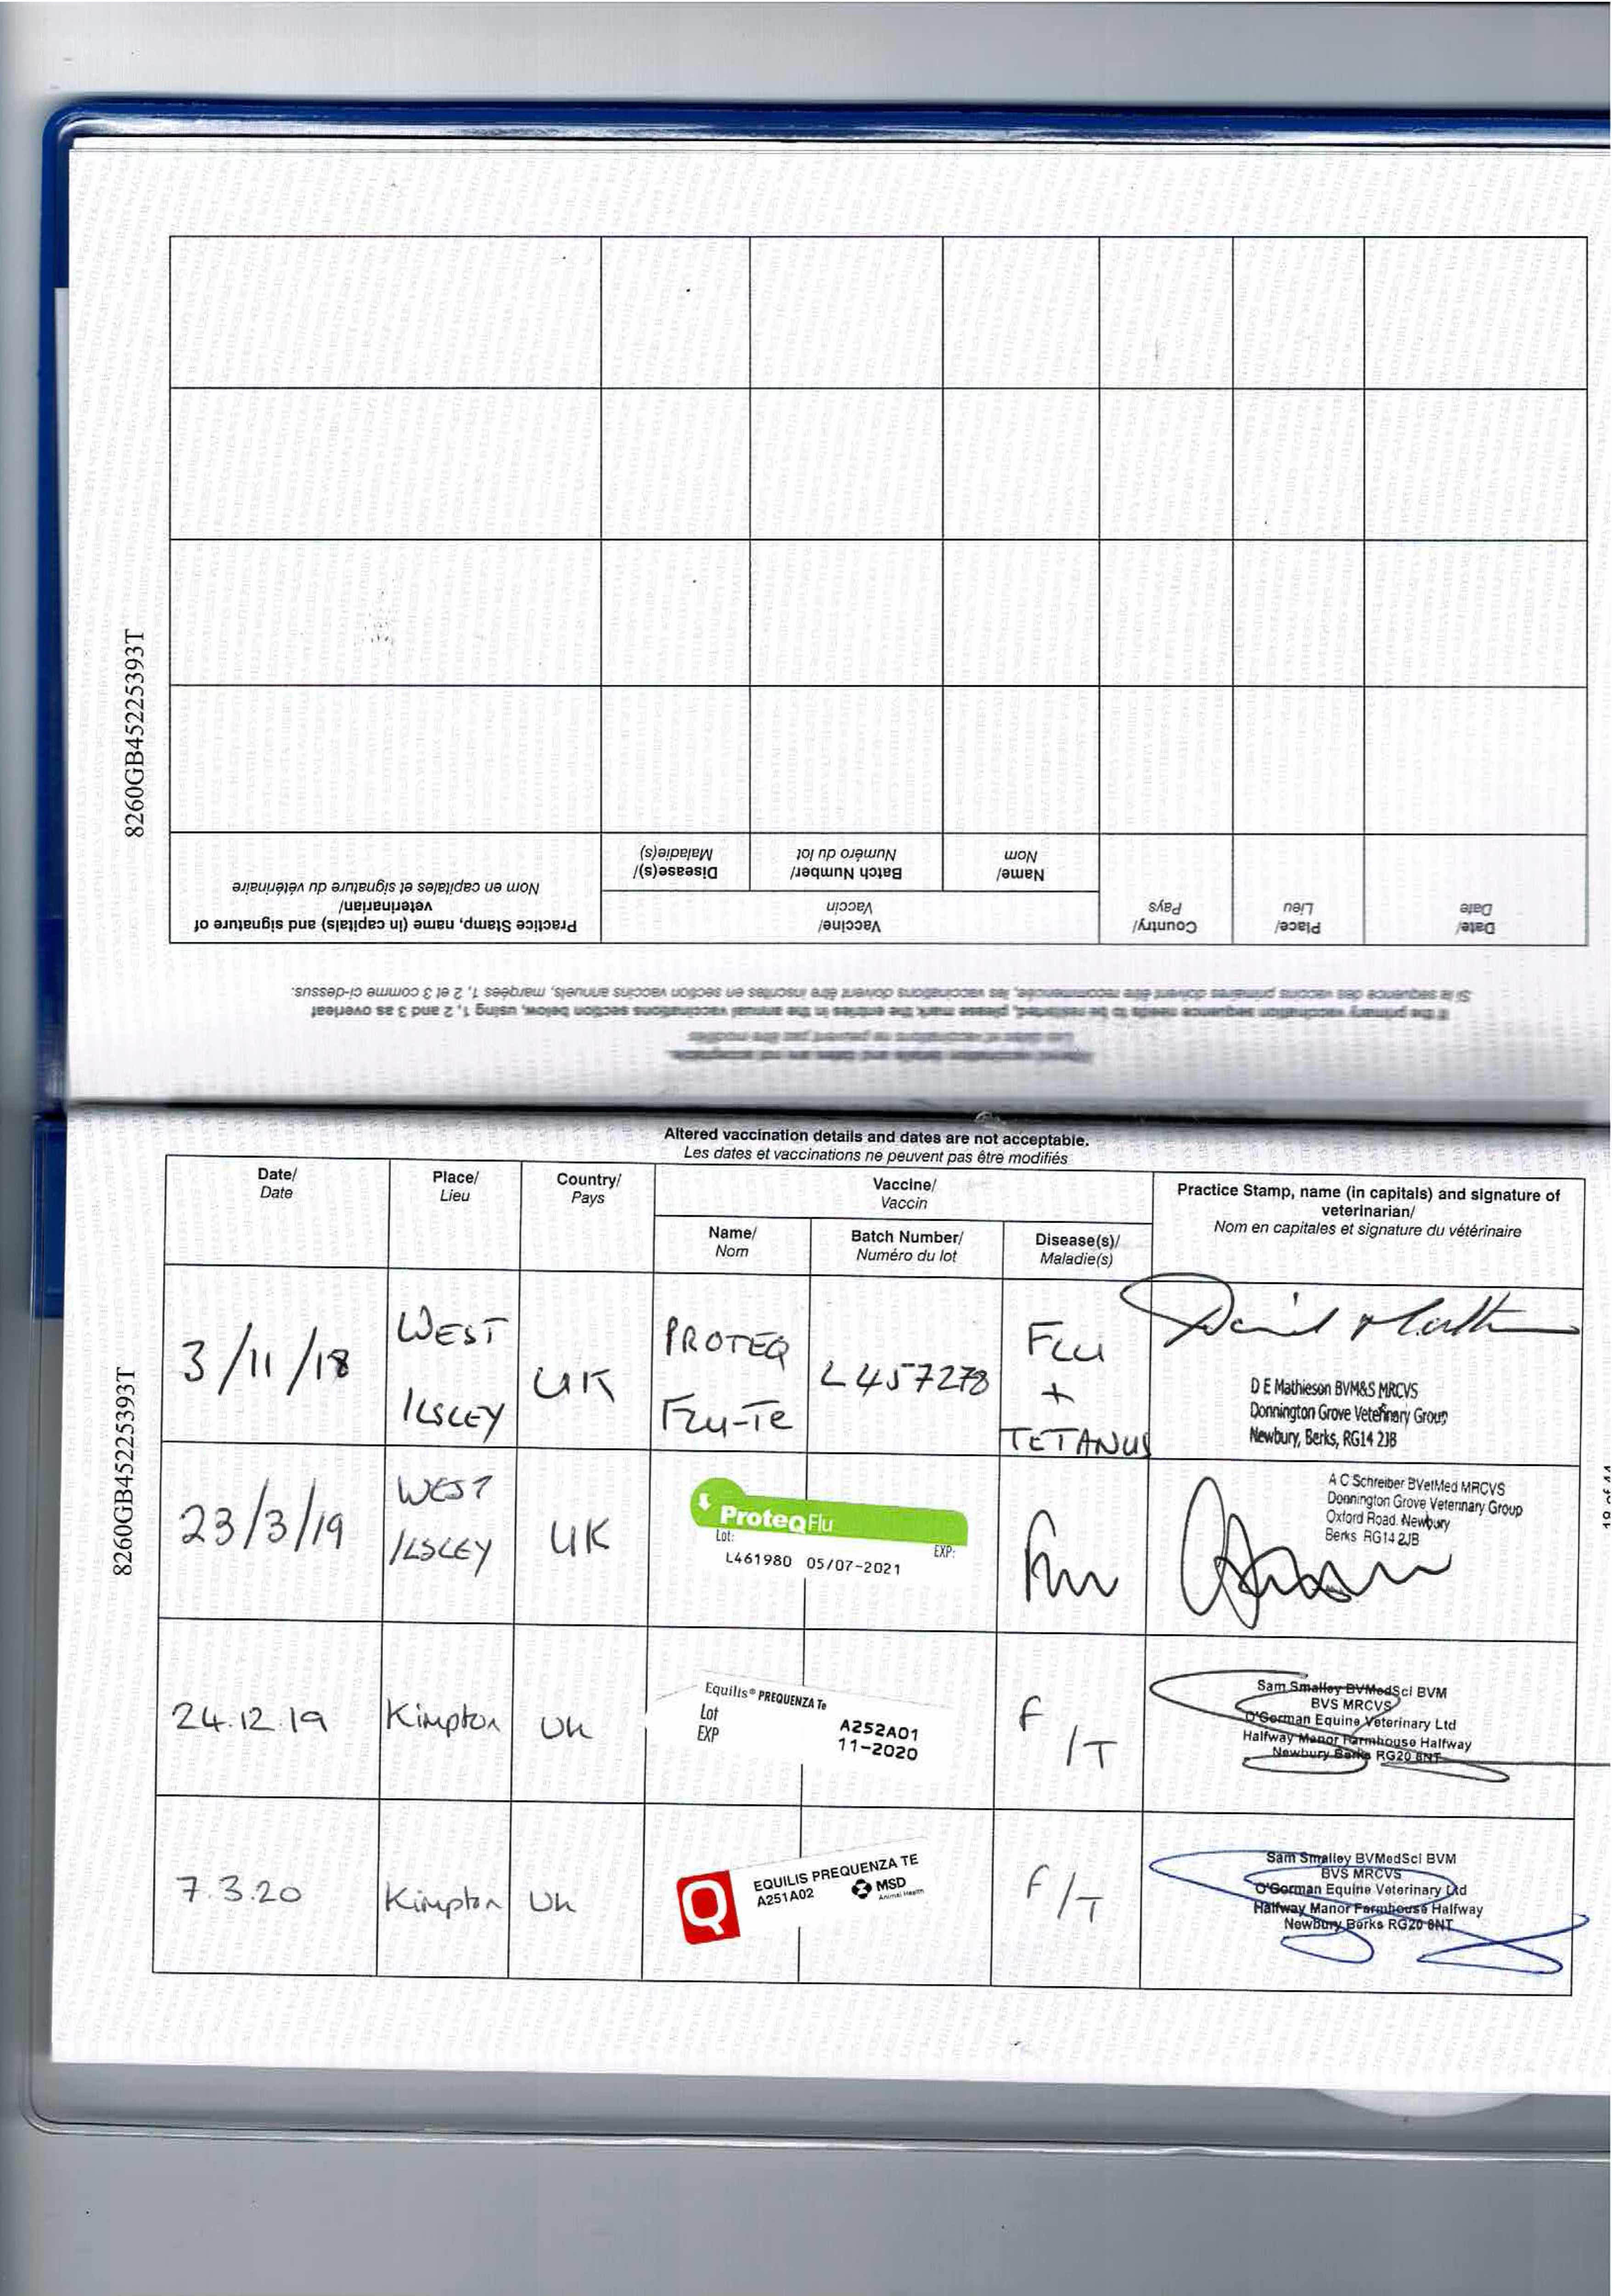 8260GB45225393T
Si la sequence des vaccins primaires doivent être recommencée, les vaccinations doivent être inscrites en section vaccins annuels, marqées 1, 2 et 3 comme ci-dessus.
If the primary vaccination sequence needs to be restarted, please mark the entries in the annual vaccinations section below, using 1, 2 and 3 as overleaf
Les dates et vaccinations ne peuvent pas être modifiés
Altered vaccination details and dates are not acceptable.
Date/
Date
Place/
Lieu
Country/
Pays
Vaccine/
Vaccin
Name/
Nom
Batch Number/
Numéro du lot
Disease(s)/
Maladie(s)
Practice Stamp, name (in capitals) and signature of
veterinarian/
Nom en capitales et signature du vétérinaire
8260GB45225393T
Altered vaccination details and dates are not acceptable.
Les dates et vaccinations ne peuvent pas être modifiés
Date/
Date
Place/
Lieu
Country/
Pays
Vaccine/
Vaccin
Name/
Nom
Batch Number/
Numéro du lot
Disease(s)/
Maladie(s)
Practice Stamp, name (in capitals) and signature of
veterinarian/
Nom en capitales et signature du vétérinaire
3/11/18
WEST
ILSLEY
UK
PROTEQ
FLU-Te
L457278
FLU
+
TETANUS
D E Mathieson BVM&S MRCVS
Donnington Grove Veterinary Group
Newbury, Berks, RG14 2JB
23/3/19
WEST
ILSLEY
UK
ProteqFlu
Lot:
EXP:
L461980 05/07-2021
Flu
A C Schreiber BVetMed MRCVS
Donnington Grove Veterinary Group
Oxford Road. Newbury
Berks RG14 2JB
24.12.19
Kimpton
Uk
Equilis® PREQUENZA Te
Lot
A252A01
EXP
11-2020
F/T
Sam Smalley BVMedSci BVM
BVS MRCVS
O'Gorman Equine Veterinary Ltd
Halfway Manor Farmhouse Halfway
Newbury Berks RG20 8NT
7.3.20
Kimpton
Uk
Q
EQUILIS PREQUENZA TE
A251A02
MSD
Animal Health
F/T
Sam Smalley BVMedSci BVM
BVS MRCVS
O'Gorman Equine Veterinary Ltd
Halfway Manor Farmhouse Halfway
Newbury Berks RG20 8NT